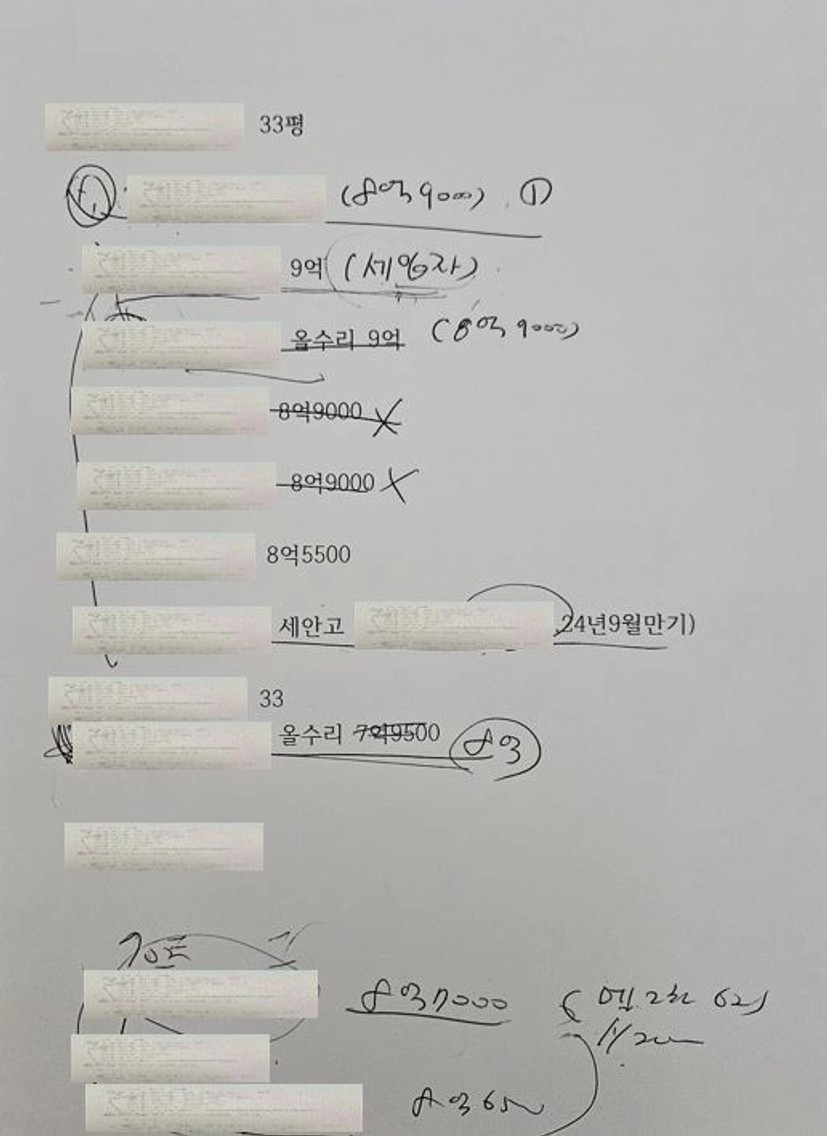 33평
(8억9000) ①
9억 (세입자)
올수리 9억 (8억9000)
8억9000 X
8억9000 X
8억5500
세안고 24년9월만기)
33
올수리 7억9500 8억
8억7000
8억65